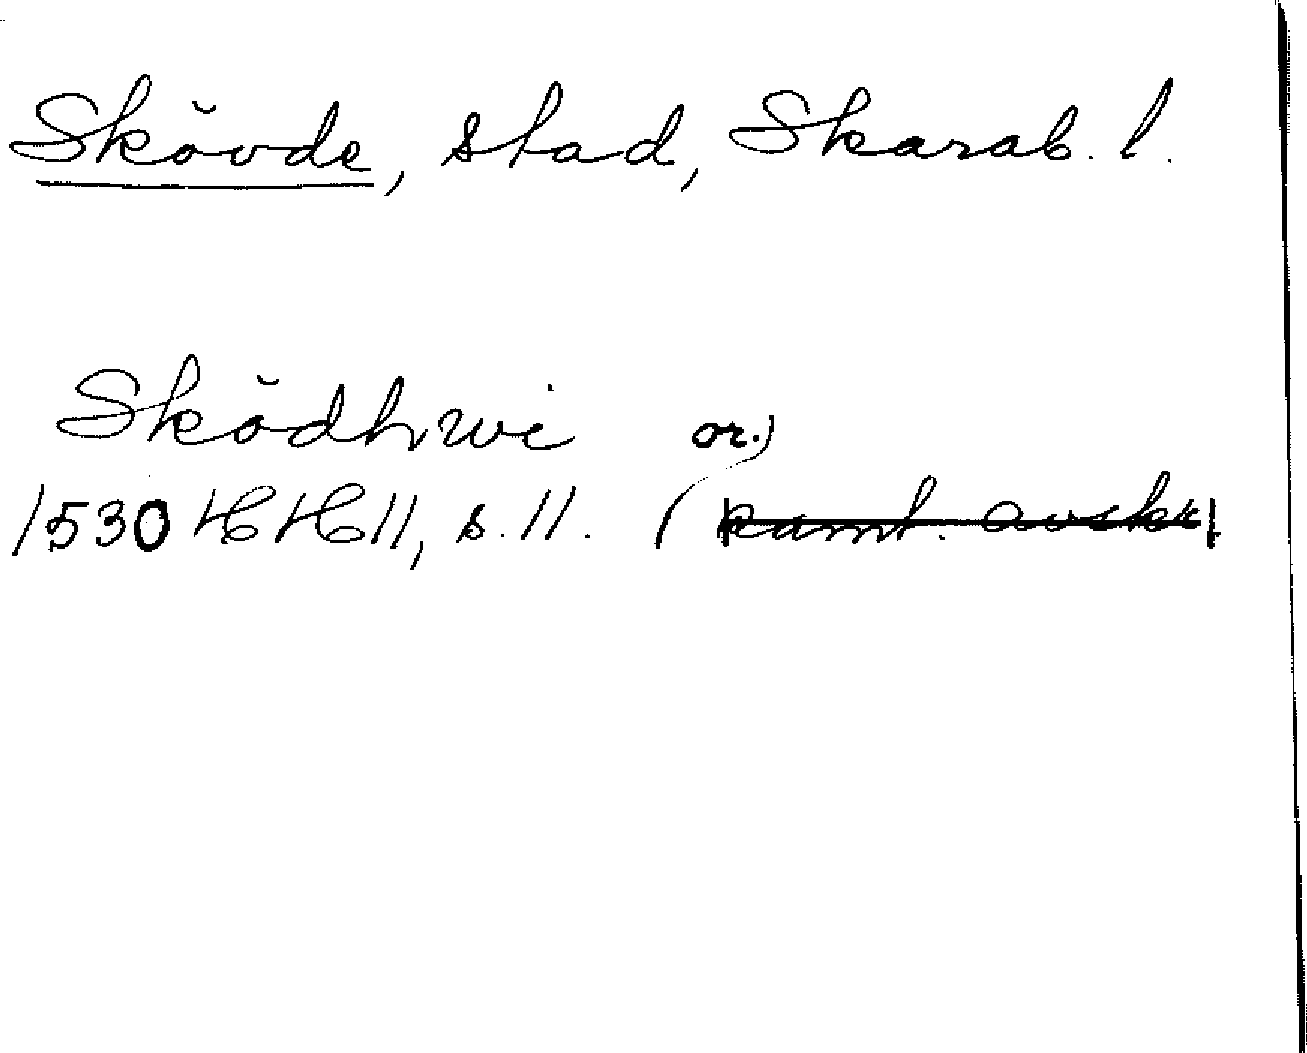 Skövde, stad, Skarab. l.
Sködhwi or.)
1530 HH 11, s. 11. (samt. avskr.